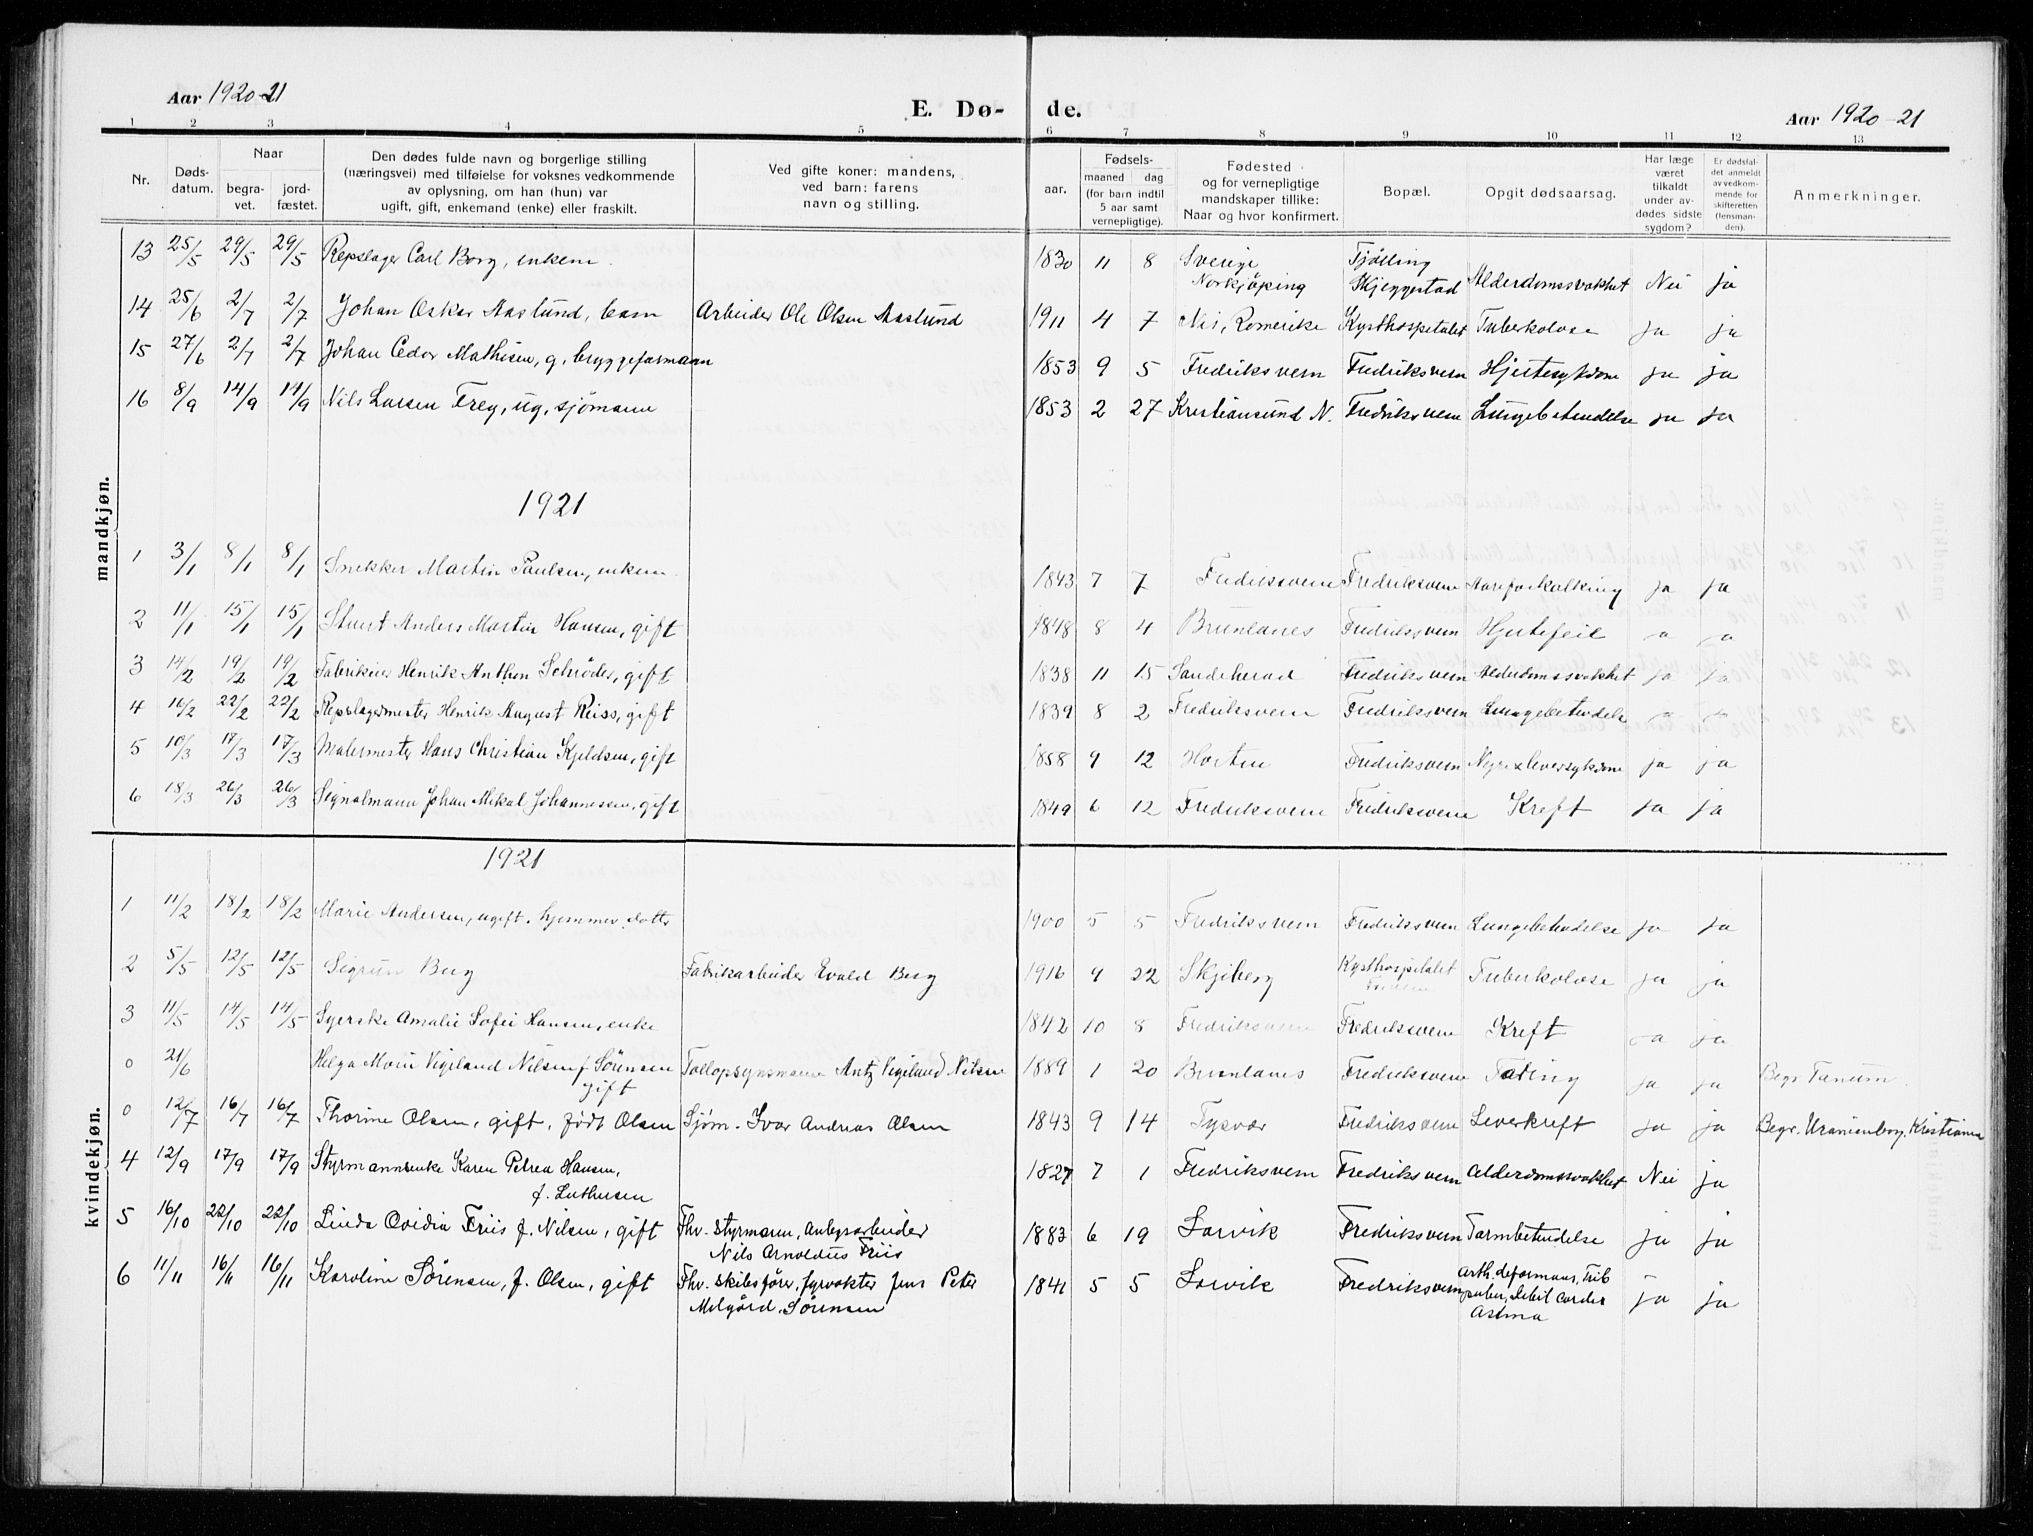 Aar 1920-21 E. Dø- de. Aar 1920-21
1 2 3 4 5 6 7 8 9 10 11 12 13
Nr. Døds-datum. Naar begra-vet. jord-fæstet. Den dødes fulde navn og borgerlige stilling (næringsvei) med tilføielse for voksnes vedkommende av oplysning, om han (hun) var ugift, gift, enkemand (enke) eller fraskilt. Ved gifte koner: mandens, ved barn: farens navn og stilling. Fødsels- aar. maaned dag (for barn indtil 5 aar samt vernepligtige). Fødested og for vernepligtige mandskaper tillike: Naar og hvor konfirmert. Bopæl. Opgit dødsaarsag. Har læge været tilkaldt under av-dødes sidste sygdom? Er dødsfal-det anmeldt av vedkom-mende for skifteretten (lensman-den). Anmerkninger.
mandkjøn.
13 25/5 29/5 29/5 Repslager Carl Borg, enkem. 1830 11 8 Sverige Norkjøping Tjølling Skjeggestad Alderdomssvakhet Nei ja
14 25/6 2/7 2/7 Johan Oskar Aaslund, barn Arbeider Ole Olsen Aaslund 1911 4 7 Nes, Romerike Kysthospitalet Tuberkolose ja ja
15 27/6 2/7 2/7 Johan Cedor Mathisen, g. bryggeformann 1853 9 5 Fredriksvern Fredriksvern Hjertesykdom ja ja
16 8/9 14/9 14/9 Nils Larsen Frey, ug, sjømann 1853 2 27 Kristiansund N. Fredriksvern Lungebetendelse ja ja
1921
1 3/1 8/1 8/1 Snekker Martin Paulsen, enkem. 1843 7 7 Fredriksvern Fredriksvern Aareforkalkning ja ja
2 11/1 15/1 15/1 Stuert Anders Martin Hansen, gift 1848 8 4 Brunlanes Fredriksvern Hjertefeil ja ja
3 14/2 19/2 19/2 Fabrikeier Henrik Anthon Schrøder, gift 1838 11 15 Sandeherad Fredriksvern Alderdomssvakhet ja ja
4 16/2 22/2 22/2 Repslagermester Henrik August Reiss, gift 1839 8 2 Fredriksvern Fredriksvern Lungebetendelse ja ja
5 10/3 17/3 17/3 Malermester Hans Christian Kjeldsen, gift 1858 9 12 Horten Fredriksvern Nyre & leversykdom ja ja
6 18/3 26/3 26/3 Signalmann Johan Mikal Johannessen, gift 1849 6 12 Fredriksvern Fredriksvern Kreft ja ja
kvindekjøn.
1921
1 11/2 18/2 18/2 Marie Andersen, ugift. hjemmev. datter 1900 5 5 Fredriksvern Fredriksvern Lungebetendelse ja ja
2 5/5 12/5 12/5 Sigrun Berg Fabrikarbeider Evald Berg 1916 9 22 Skjeberg Kysthospitalet Tuberkolose ja ja
3 11/5 14/5 14/5 Syerske Amalie Sofie Hansen, enke 1842 10 8 Fredriksvern Fredriksvern Kreft ja ja
0 21/6 Helga Marie Vigeland Nilsen f Sørensen gift Tollopsynsmann Antz Vigeland Nilsen 1889 1 20 Brunlanes Fredriksvern Tæring ja ja Begr. Tanum.
0 12/7 16/7 16/7 Thorine Olsen, gift, født Olsen Sjøm. Ivar Andreas Olsen 1843 9 14 Tysvær Fredriksvern Leverkreft ja ja Begr. Uranienborg, Kristiania
4 12/9 17/9 17/9 Styrmannsenke Karen Petrea Hansen, f. Luthersen 1827 7 1 Fredriksvern Fredriksvern Alderdomssvakhet Nei ja
5 16/10 22/10 22/10 Linda Ovidia Friis f. Nilsen, gift Fhv. styrmann, Anlegsarbeider Nils Arnoldus Friis 1883 6 19 Larvik Fredriksvern Tarmbetendelse ja ja
6 11/11 16/11 16/11 Karoline Sørensen, f. Olsen, gift Fhv. skibsfører, fyrvokter Jens Peter Melgård Sørensen 1841 5 5 Larvik Fredriksvern Arth. deformans, Debil. cordis Astma ja ja